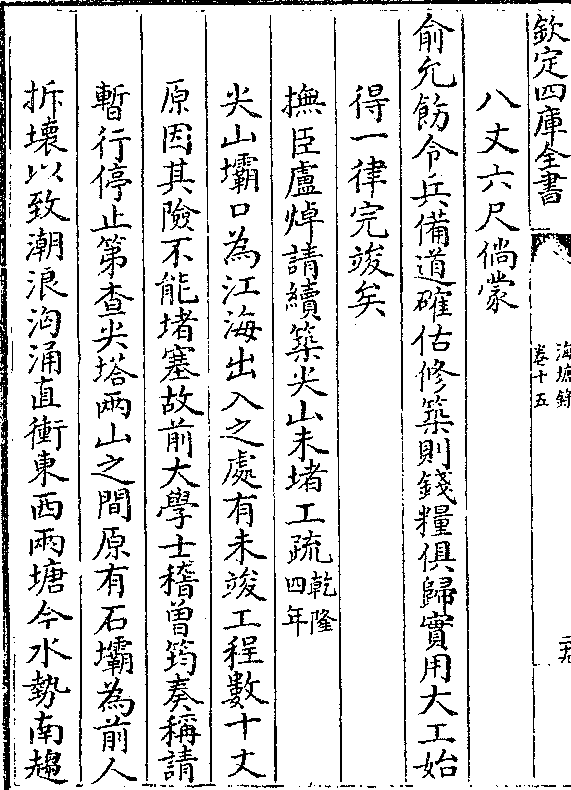 欽定四庫全書
海塘錄
卷十五
二九
八丈六尺倘蒙
俞允飭令兵備道確估修築則錢糧俱歸實用大工始
得一律完竣矣
撫臣盧焯請續築尖山未堵工疏乾隆四年
尖山壩口為江海出入之處有未竣工程數十丈
原因其險不能堵塞故前大學士稽曾筠奏稱請
暫行停止第查尖塔兩山之間原有石壩為前人
拆壞以致潮浪洶涌直衝東西兩塘今水勢南趨